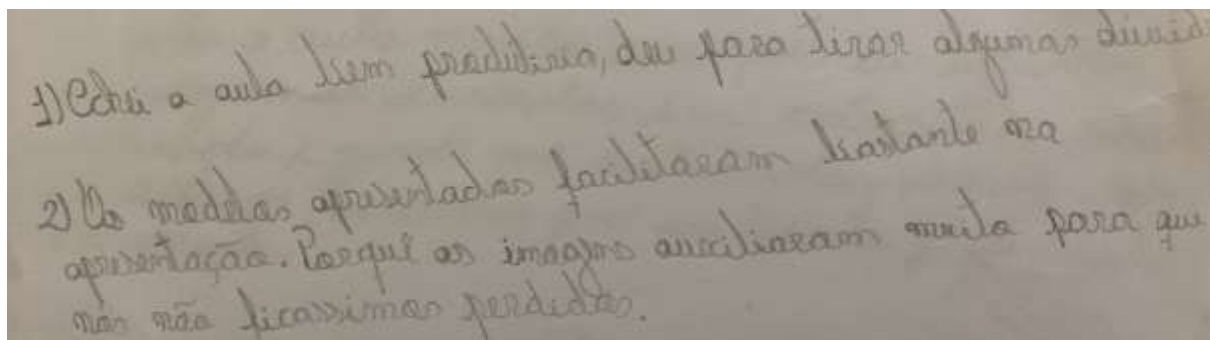 1) Achei a aula bem produtiva, deu para tirar algumas dúvid
2) Os modelos apresentados facilitaram bastante na
apresentação. Porquê as imagens auxiliaram muito para que
nós não ficassimos perdidos.